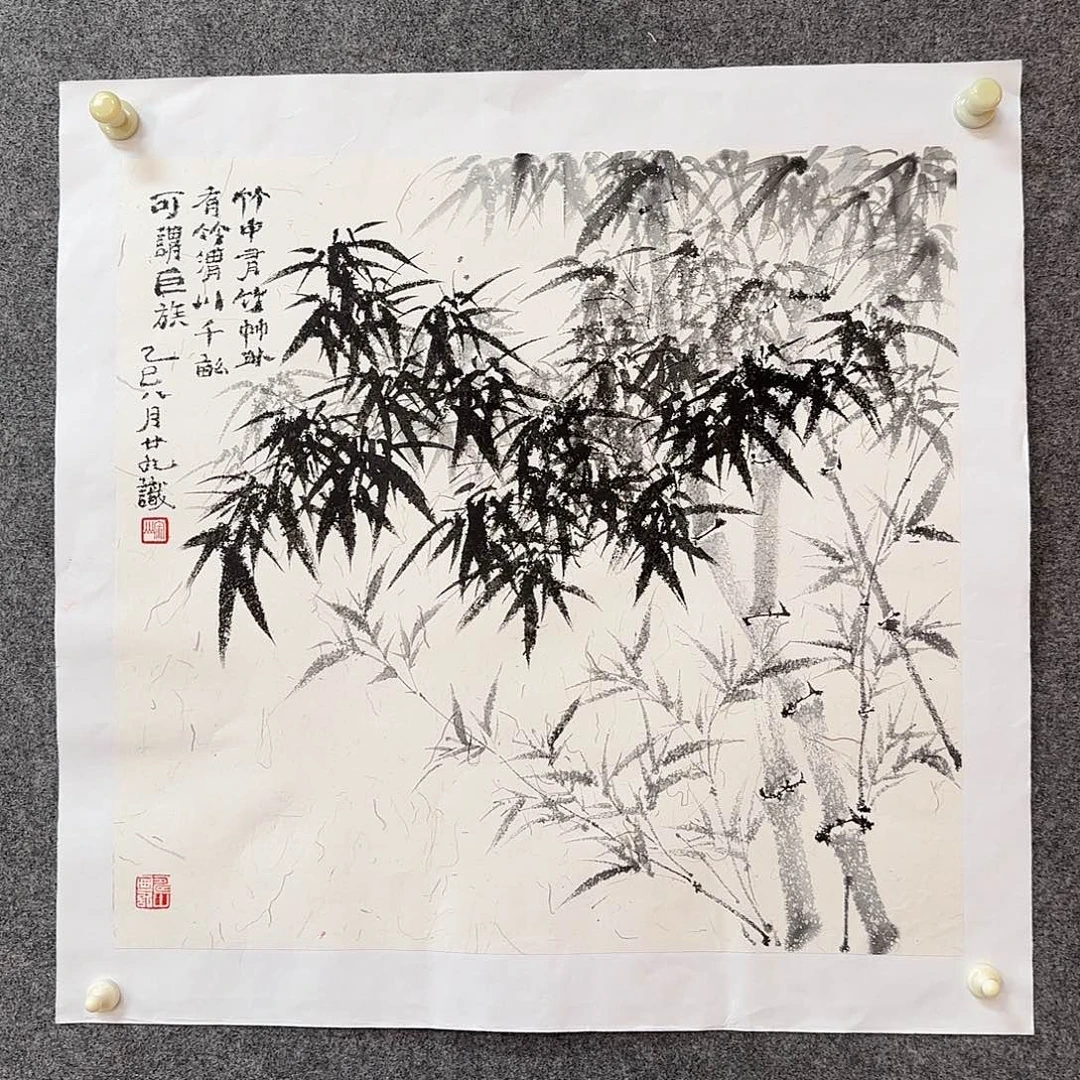 竹中有竹竹外
有竹渭川千畝
可謂巨族 乙巳八月廿九識